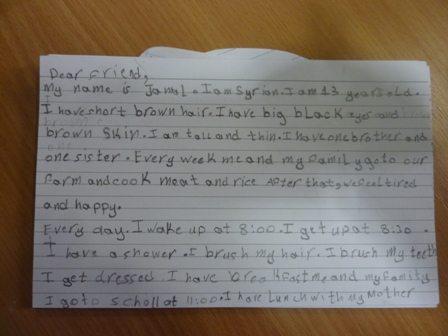 Dear Friend,
My name is Jamal. I am Syrian. I am 13 years old.
I have short brown hair. I have big black eyes and
brown skin. I am tall and thin. I have one brother and
one sister. Every week me and my family go to our
farm and cook meat and rice After that, we feel tired
and happy.
Every day. I wake up at 8:00. I get up at 8:30
I have a shower. I brush my hair. I brush my teeth
I get dressed. I have breakfast me and my family
I go to scholl at 11:00. I have Lunch with my Mother